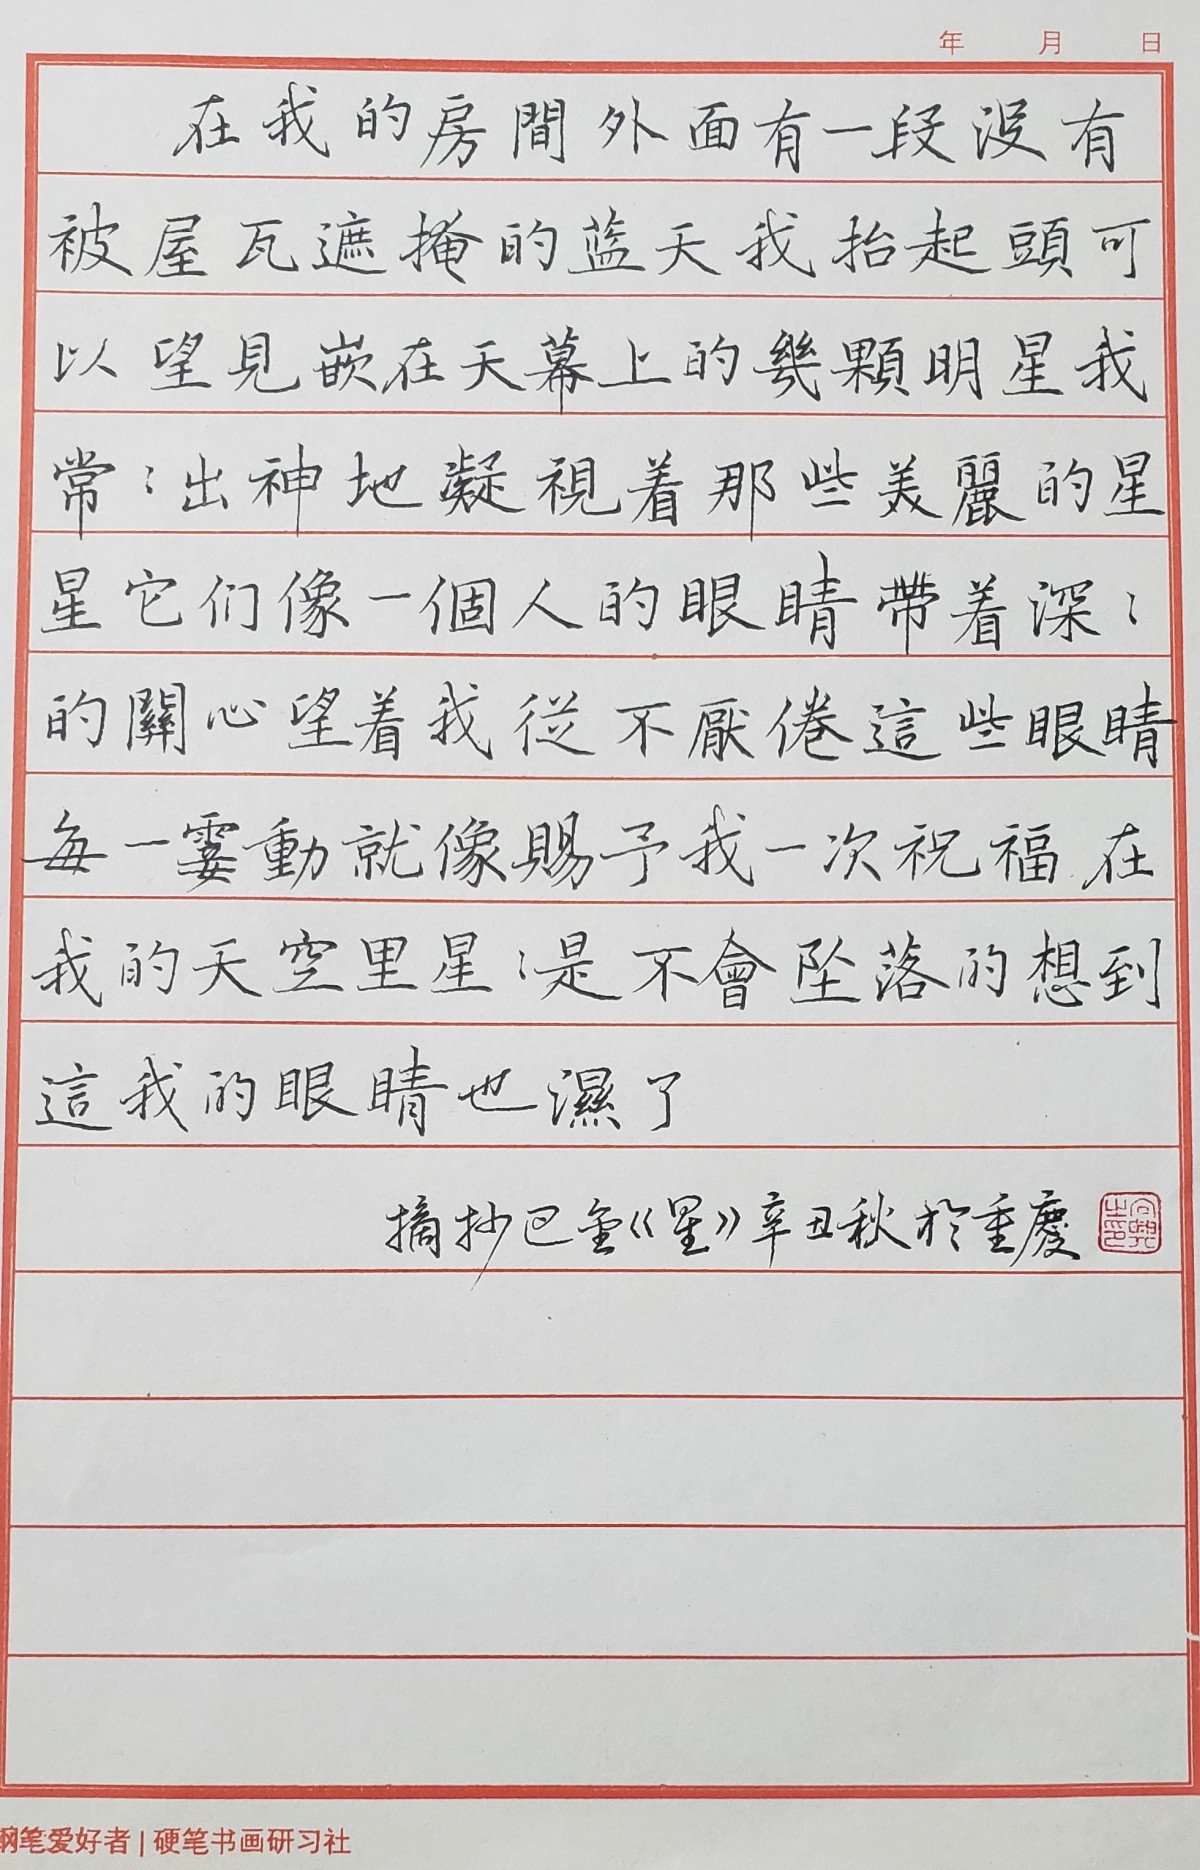 年 月 日
在我的房間外面有一段没有
被屋瓦遮掩的蓝天我抬起頭可
以望見嵌在天幕上的幾顆明星我
常⺀出神地凝視着那些美麗的星
星它们像一個人的眼睛帶着深⺀
的關心望着我從不厭倦這些眼睛
每一霎動就像賜予我一次祝福在
我的天空里星⺀是不會坠落的想到
這我的眼睛也濕了
摘抄巴金《星》辛丑秋於重慶
钢笔爱好者 | 硬笔书画研习社